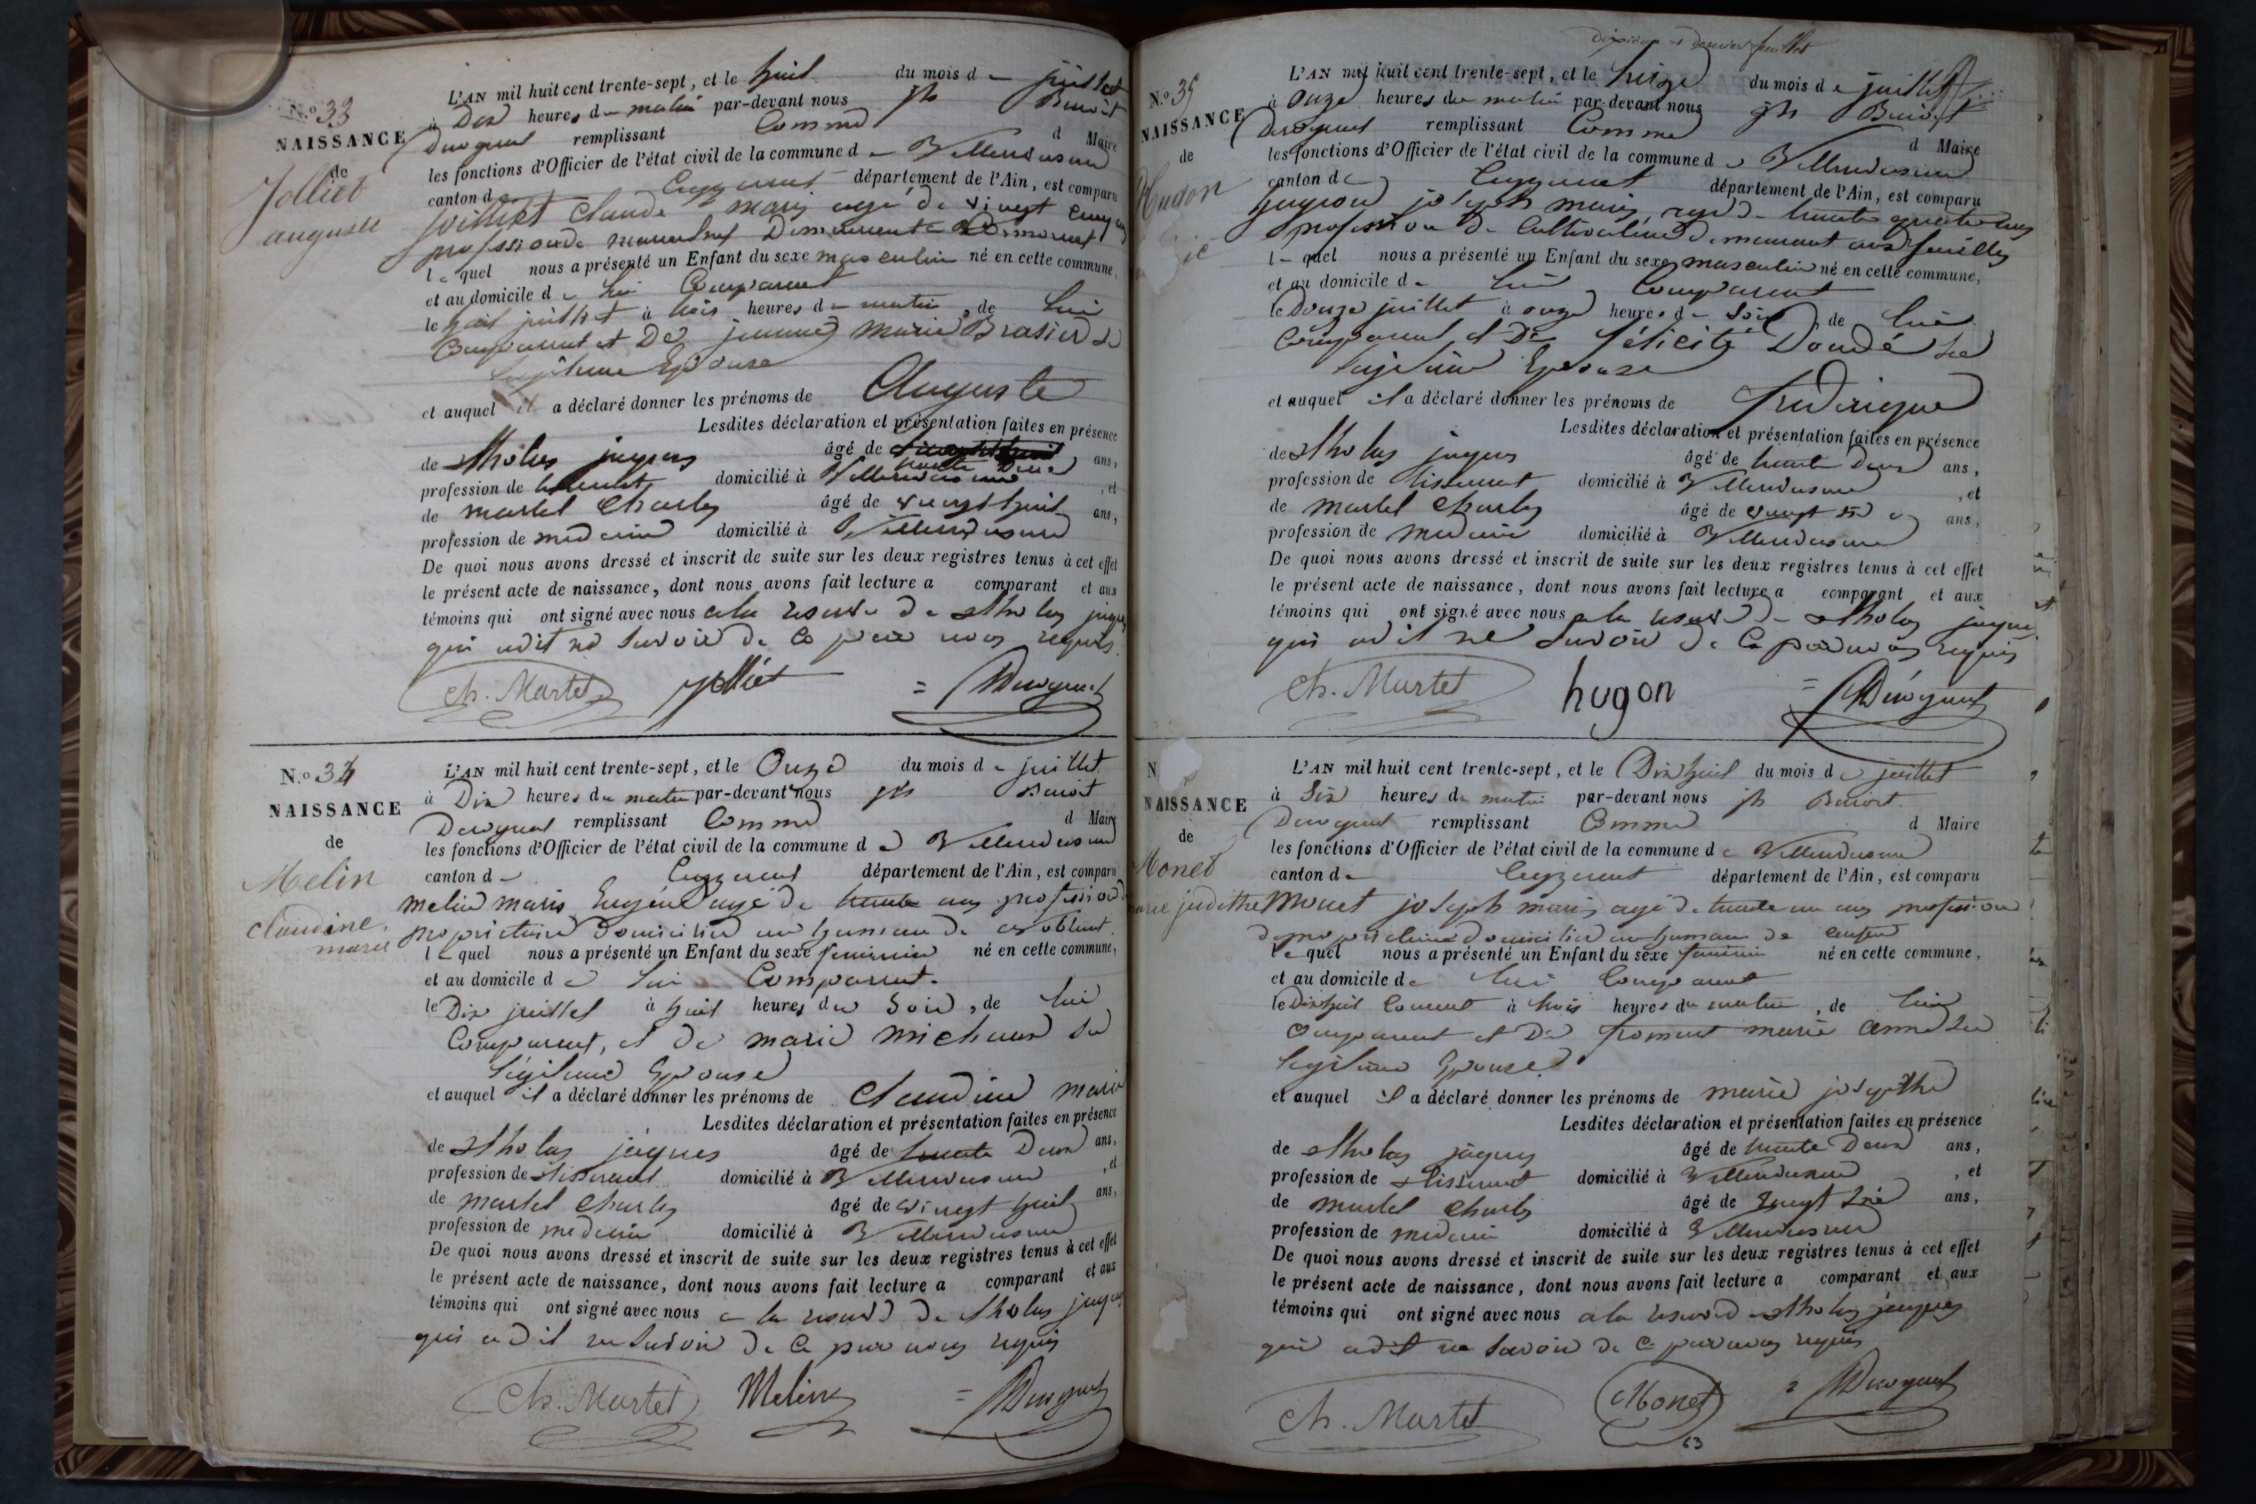 N.o 33
NAISSANCE
de
Jolliet
auguste
L'AN mil huit cent trente-sept, et le huit du mois d juillet
à Dix heures du matin par-devant nous jh Benoit
remplissant Comme d Maire
les fonctions d'Officier de l'état civil de la commune d
canton d département de l'Ain, est comparu
Claude marie agé de vingt
profession de Demeurant a
le quel nous a présenté un Enfant du sexe masculin né en cette commune,
et au domicile de lui Comparant
le huit juillet à trois heures du matin, de lui
Comparant et De jeanne marie Brasier Sa
Légitime Epouse
et auquel il a déclaré donner les prénoms de Auguste
Lesdites déclaration et présentation faites en présence
de jaques âgé de trente Deux ans,
profession de domicilié à , et
de martel Charles âgé de vingt huit ans,
profession de medecin domicilié à
De quoi nous avons dressé et inscrit de suite sur les deux registres tenus à cet effet
le présent acte de naissance, dont nous avons fait lecture a comparant et aux
témoins qui ont signé avec nous a la reserve de jaques
qui a dit ne Savoir de Ce par nous requis
Ch. Martel Jolliet
N.o 34
NAISSANCE
de
Melin
claudine
marie
L'AN mil huit cent trente-sept, et le Onze du mois de juillet
à Dix heures du matin par-devant nous jh Benoit
remplissant Comme d Maire
les fonctions d'Officier de l'état civil de la commune d
canton d département de l'Ain, est comparu
melin marie Eugéne agé de trente ans profession de
propriétaire domicilié au hameau de
le quel nous a présenté un Enfant du sexe feminin né en cette commune,
et au domicile de lui Comparant.
le Dix juillet à huit heures du Soir, de lui
Comparant, et de marie michaud Sa
Légitime Epouse
et auquel il a déclaré donner les prénoms de Claudine marie
Lesdites déclaration et présentation faites en présence
de jaques âgé de trente Deux ans,
profession de tisserant domicilié à , et
de martel Charles âgé de vingt huit ans,
profession de medecin domicilié à
De quoi nous avons dressé et inscrit de suite sur les deux registres tenus à cet effet
le présent acte de naissance, dont nous avons fait lecture a comparant et aux
témoins qui ont signé avec nous a la reserve de jaques
qui a dit ne Savoir de Ce par nous requis
Ch. Martel Melin
dernier feuillet
N.o 35
NAISSANCE
de
Hugon
L'AN mil huit cent trente-sept, et le treize du mois de juillet
à onze heures du matin par-devant nous jh Benoit
remplissant Comme d Maire
les fonctions d'Officier de l'état civil de la commune d
canton de département de l'Ain, est comparu
joseph marie agé de trente quatre ans
profession de Cultivateur demeurant aux
le quel nous a présenté un Enfant du sexe masculin né en cette commune,
et au domicile de lui Comparant
le Douze juillet à onze heures du Soir, de lui
Comparant et De félicité Sa
Légitime Epouse
et auquel il a déclaré donner les prénoms de frederique
Lesdites déclaration et présentation faites en présence
de jaques âgé de trente Deux ans,
profession de tisserant domicilié à , et
de martel Charles âgé de vingt ans,
profession de medecin domicilié à
De quoi nous avons dressé et inscrit de suite sur les deux registres tenus à cet effet
le présent acte de naissance, dont nous avons fait lecture a comparant et aux
témoins qui ont signé avec nous a la reserve de jaques
qui a dit ne Savoir de Ce par nous requis
Ch. Martel hugon
NAISSANCE
de
Monet
judithe
L'AN mil huit cent trente-sept, et le Dix huit du mois de juillet
à Six heures du matin par-devant nous jh Benoit
remplissant Comme d Maire
les fonctions d'Officier de l'état civil de la commune de
canton de département de l'Ain, est comparu
Monet joseph marie agé de trente un ans profession
de propriétaire domicilié au hameau de
le quel nous a présenté un Enfant du sexe feminin né en cette commune,
et au domicile de lui Comparant
le Dix huit Courant à trois heures du matin, de lui
Comparant et De froment marie anne Sa
Légitime Epouse
et auquel il a déclaré donner les prénoms de marie
Lesdites déclaration et présentation faites en présence
de jaques âgé de trente Deux ans,
profession de tisserant domicilié à , et
de martel Charles âgé de vingt ans,
profession de medecin domicilié à
De quoi nous avons dressé et inscrit de suite sur les deux registres tenus à cet effet
le présent acte de naissance, dont nous avons fait lecture a comparant et aux
témoins qui ont signé avec nous a la reserve de jaques
qui a dit ne Savoir de Ce par nous requis
Ch. Martel Monet
63